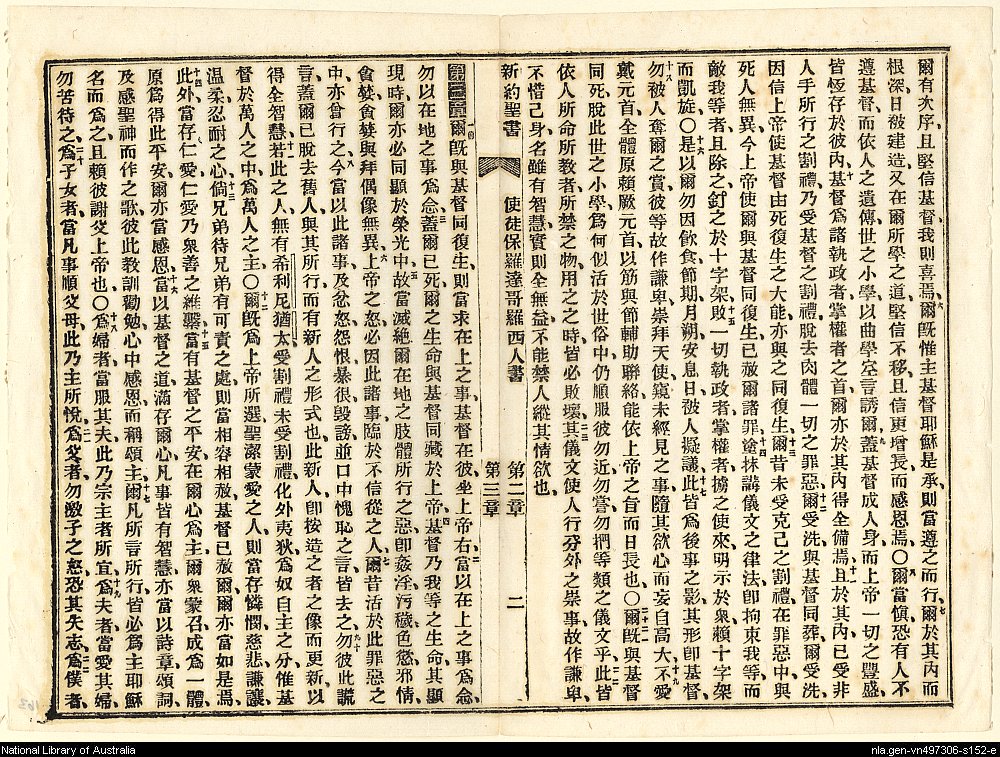 爾有次序、且堅信基督、我則喜焉、六爾旣惟主基督耶穌是承、則當遵之而行、七爾於其內而
根深日被建造、又在爾所學之道、堅信不移、且信更增長而感恩焉、〇八爾當愼、恐有人不
遵基督、而依人之遺傳、世之小學、以曲學空言誘爾、九蓋基督成人身、而上帝一切之豐盛、
皆恆存於彼內、十基督爲諸執政者、掌權者之首、爾亦於其內得全備焉、十一且於其內已受非
人手所行之割禮、乃受基督之割禮、脫去肉體一切之罪惡、十二爾受洗與基督同葬、爾受洗
因信上帝使基督由死復生之大能、亦與之同復生、十三爾昔未受克己之割禮、在罪惡中與
死人無異、今上帝使爾與基督同復生、已赦爾諸罪、十四塗抹講儀文之律法、卽拘束我等、而
敵我等者、且除之、釘之於十字架、十五敗一切執政者、掌權者、擄之使來、明示於衆、賴十字架
而凱旋〇十六是以爾勿因飮食、節期、月朔、安息日、被人擬議、十七此皆爲後事之影、其形卽基督、
十八勿被人奪爾之賞、彼等故作謙卑、崇拜天使、窺未經見之事、隨其欲心而妄自高大、十九不愛
戴元首、全體原賴厥元首、以筋與節、輔助聯絡、能依上帝之旨而日長也、〇二十爾旣與基督
同死、脫此世之小學、爲何似活於世俗中、仍順服彼勿近、勿嘗、勿捫、等類之儀文乎、二十二此皆
依人所命所教者、所禁之物、用之之時、皆必敗壞、二十三其儀文使人行分外之崇事、故作謙卑、
不惜己身、名雖有智慧、實則全無益、不能禁人縱其情欲也、
新約聖書 使徒保羅達哥羅西人書 第二章 第三章 二
第三章 一爾旣與基督同復生、則當求在上之事、基督在彼坐上帝右、二當以在上之事爲念、
勿以在地之事爲念、三蓋爾已死、爾之生命與基督同藏於上帝、四基督乃我等之生命、其顯
現時、爾亦必同顯於榮光中、五故當滅絕爾在地之肢體所行之惡、卽姦淫、污穢、色慾、邪情、
貪婪、貪婪與拜偶像無異、六上帝之怒、必因此諸事、臨於不信從之人、七爾昔活於此罪惡之
中、亦曾行之、八今當以此諸事、及忿怒、怨恨、暴很、毀謗、並口中愧恥之言、皆去之、九勿彼此謊
言、蓋爾已脫去舊人、與其所行、十而有新人之形式也、此新人、卽按造之者之像而更新、以
得全智慧、十一若此之人、無有希利尼、猶太、受割禮、未受割禮、化外、夷狄、爲奴、自主之分、惟基
督於萬人之中、爲萬人之主、〇十二爾旣爲上帝所選、聖潔蒙愛之人、則當存憐憫、慈悲、謙讓、
溫柔、忍耐之心、十三倘兄弟待兄弟有可責之處、則當相容相赦、基督已赦爾、爾亦當如是焉、
十四此外當存仁愛、仁愛乃衆善之維繫、十五當有基督之平安、在爾心爲主、爾衆蒙召成爲一體、
原爲得此平安、爾亦當感恩、十六當以基督之道、滿存爾心、凡事皆有智慧、亦當以詩章、頌詞、
及感聖神而作之歌、彼此教訓勸勉、心中感恩而稱頌主、十七爾凡所言所行、皆必爲主耶穌
名而爲之、且賴彼謝父上帝也、〇十八爲婦者、當服其夫、此乃宗主者所宜、十九爲夫者、當愛其婦、
勿苦待之、二十爲子女者、當凡事順父母、此乃主所悅、二一爲父者、勿激子之怒、恐其失志、二二爲僕者、